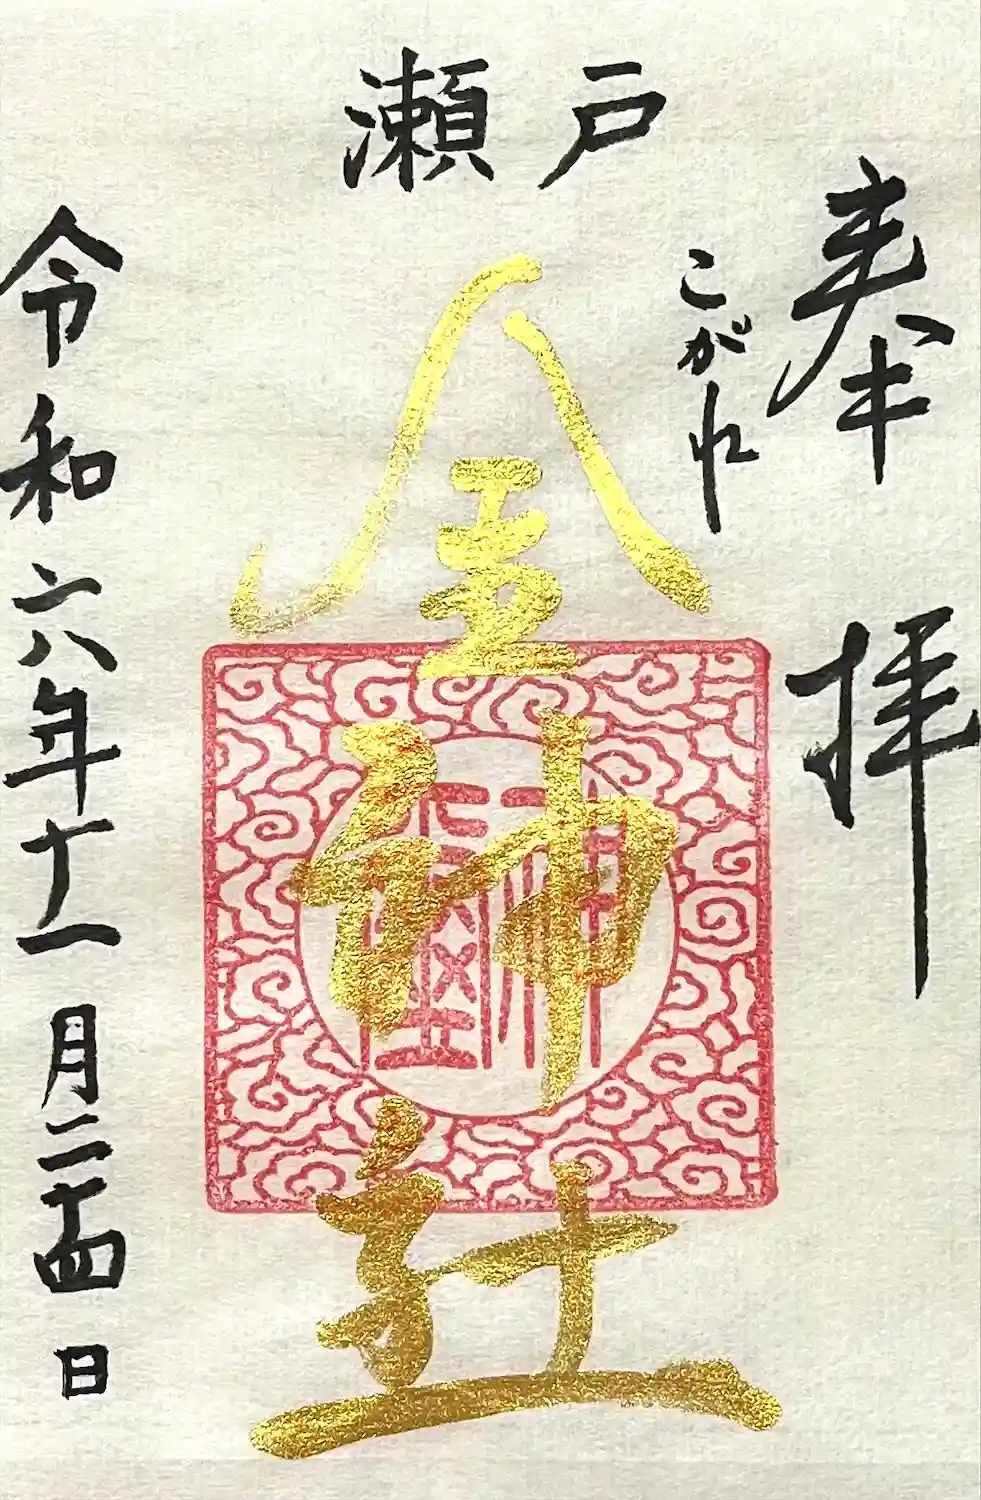 奉拝
こがれ
瀬戸
金神社
令和六年十一月二十四日